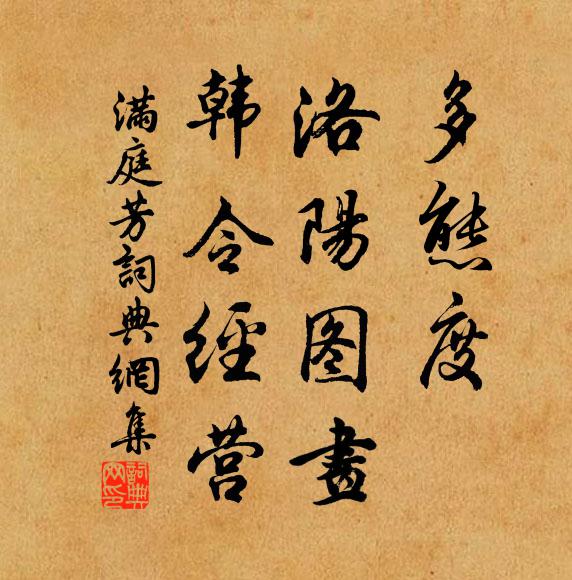 多態度
洛陽图畫
韩令經营
滿庭芳詞典網集
詞典网印